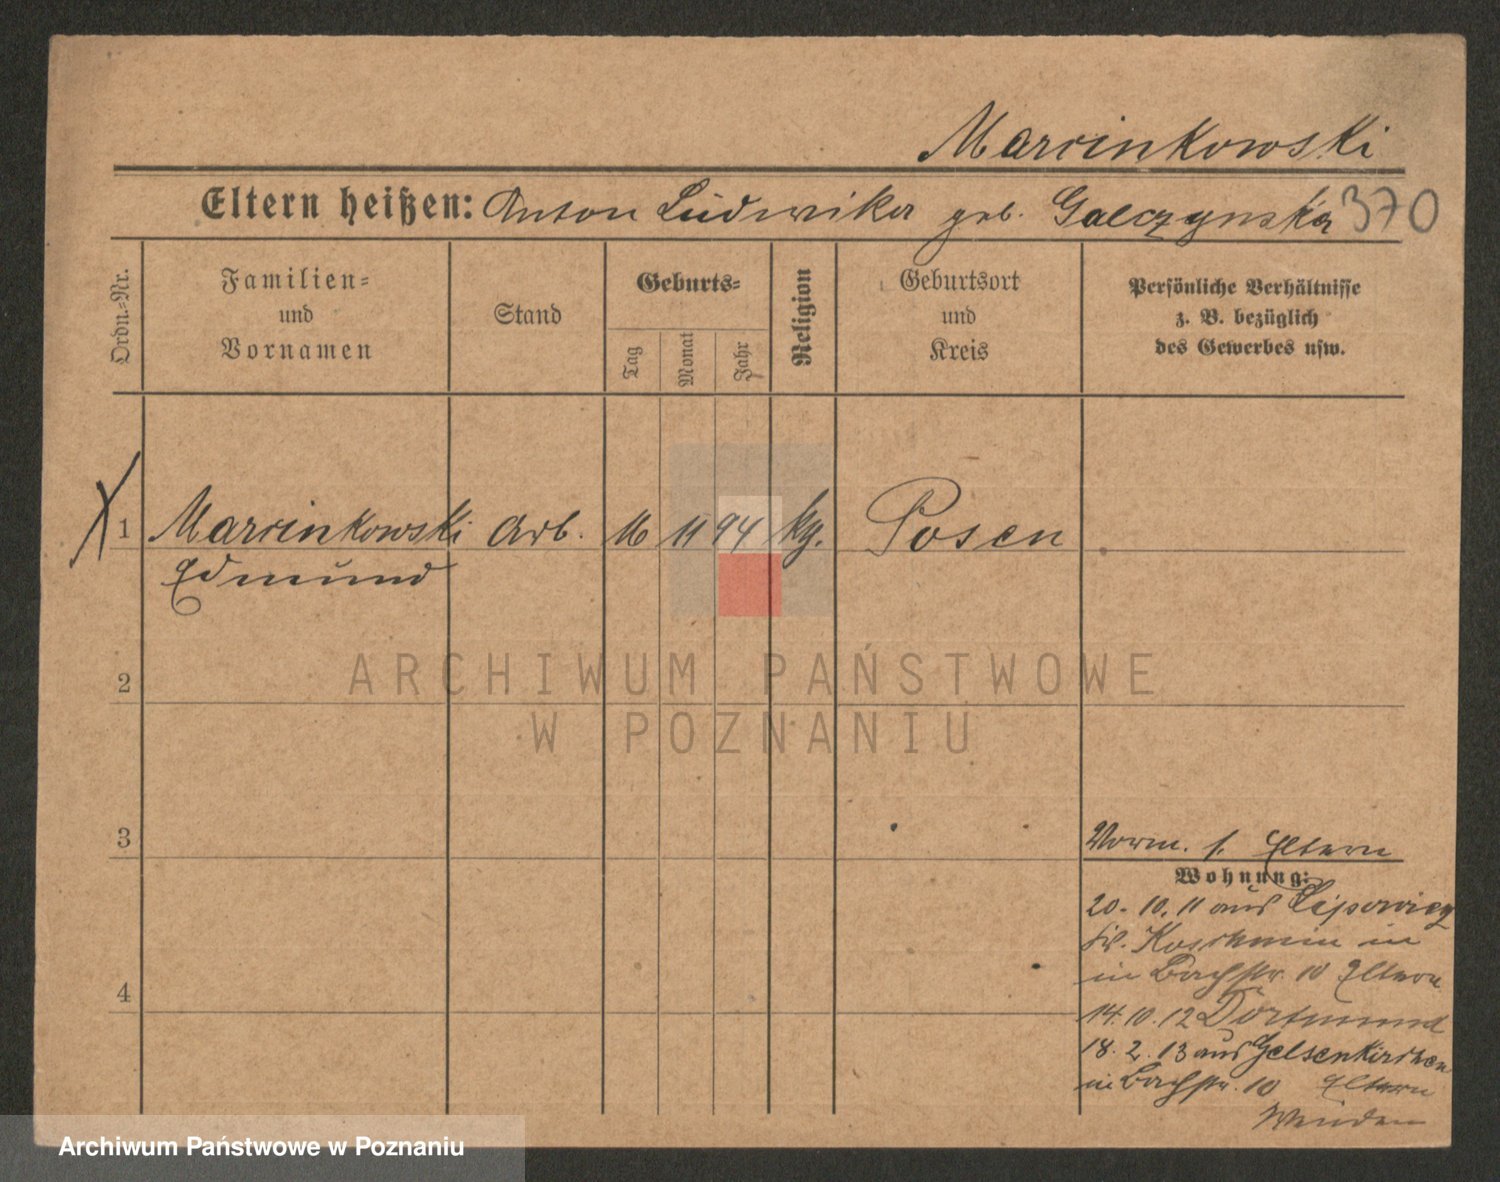 Marcinkowski
Eltern heißen: Anton Ludwika geb. Galczynska 370
Ordn.-Nr.
Familien-
und
Vornamen
Stand
Geburts-
Tag
Monat
Jahr
Religion
Geburtsort
und
Kreis
Persönliche Verhältnisse
z. B. bezüglich
des Gewerbes usw.
1 Marcinkowski Arb. 16 11 94 kg. Posen
Edmund
2
ARCHIWUM PAŃSTWOWE
W POZNANIU
3
Vorm. s. Eltern
Wohnung:
20. 10. 11 aus Lipowiec
Koschmin in
in Bachstr. 10 Eltern
14. 10. 12 Dortmund
4
18. 2. 13 aus Gelsenkirchen
in Bachstr. 10 Eltern
Wenden
Archiwum Państwowe w Poznaniu